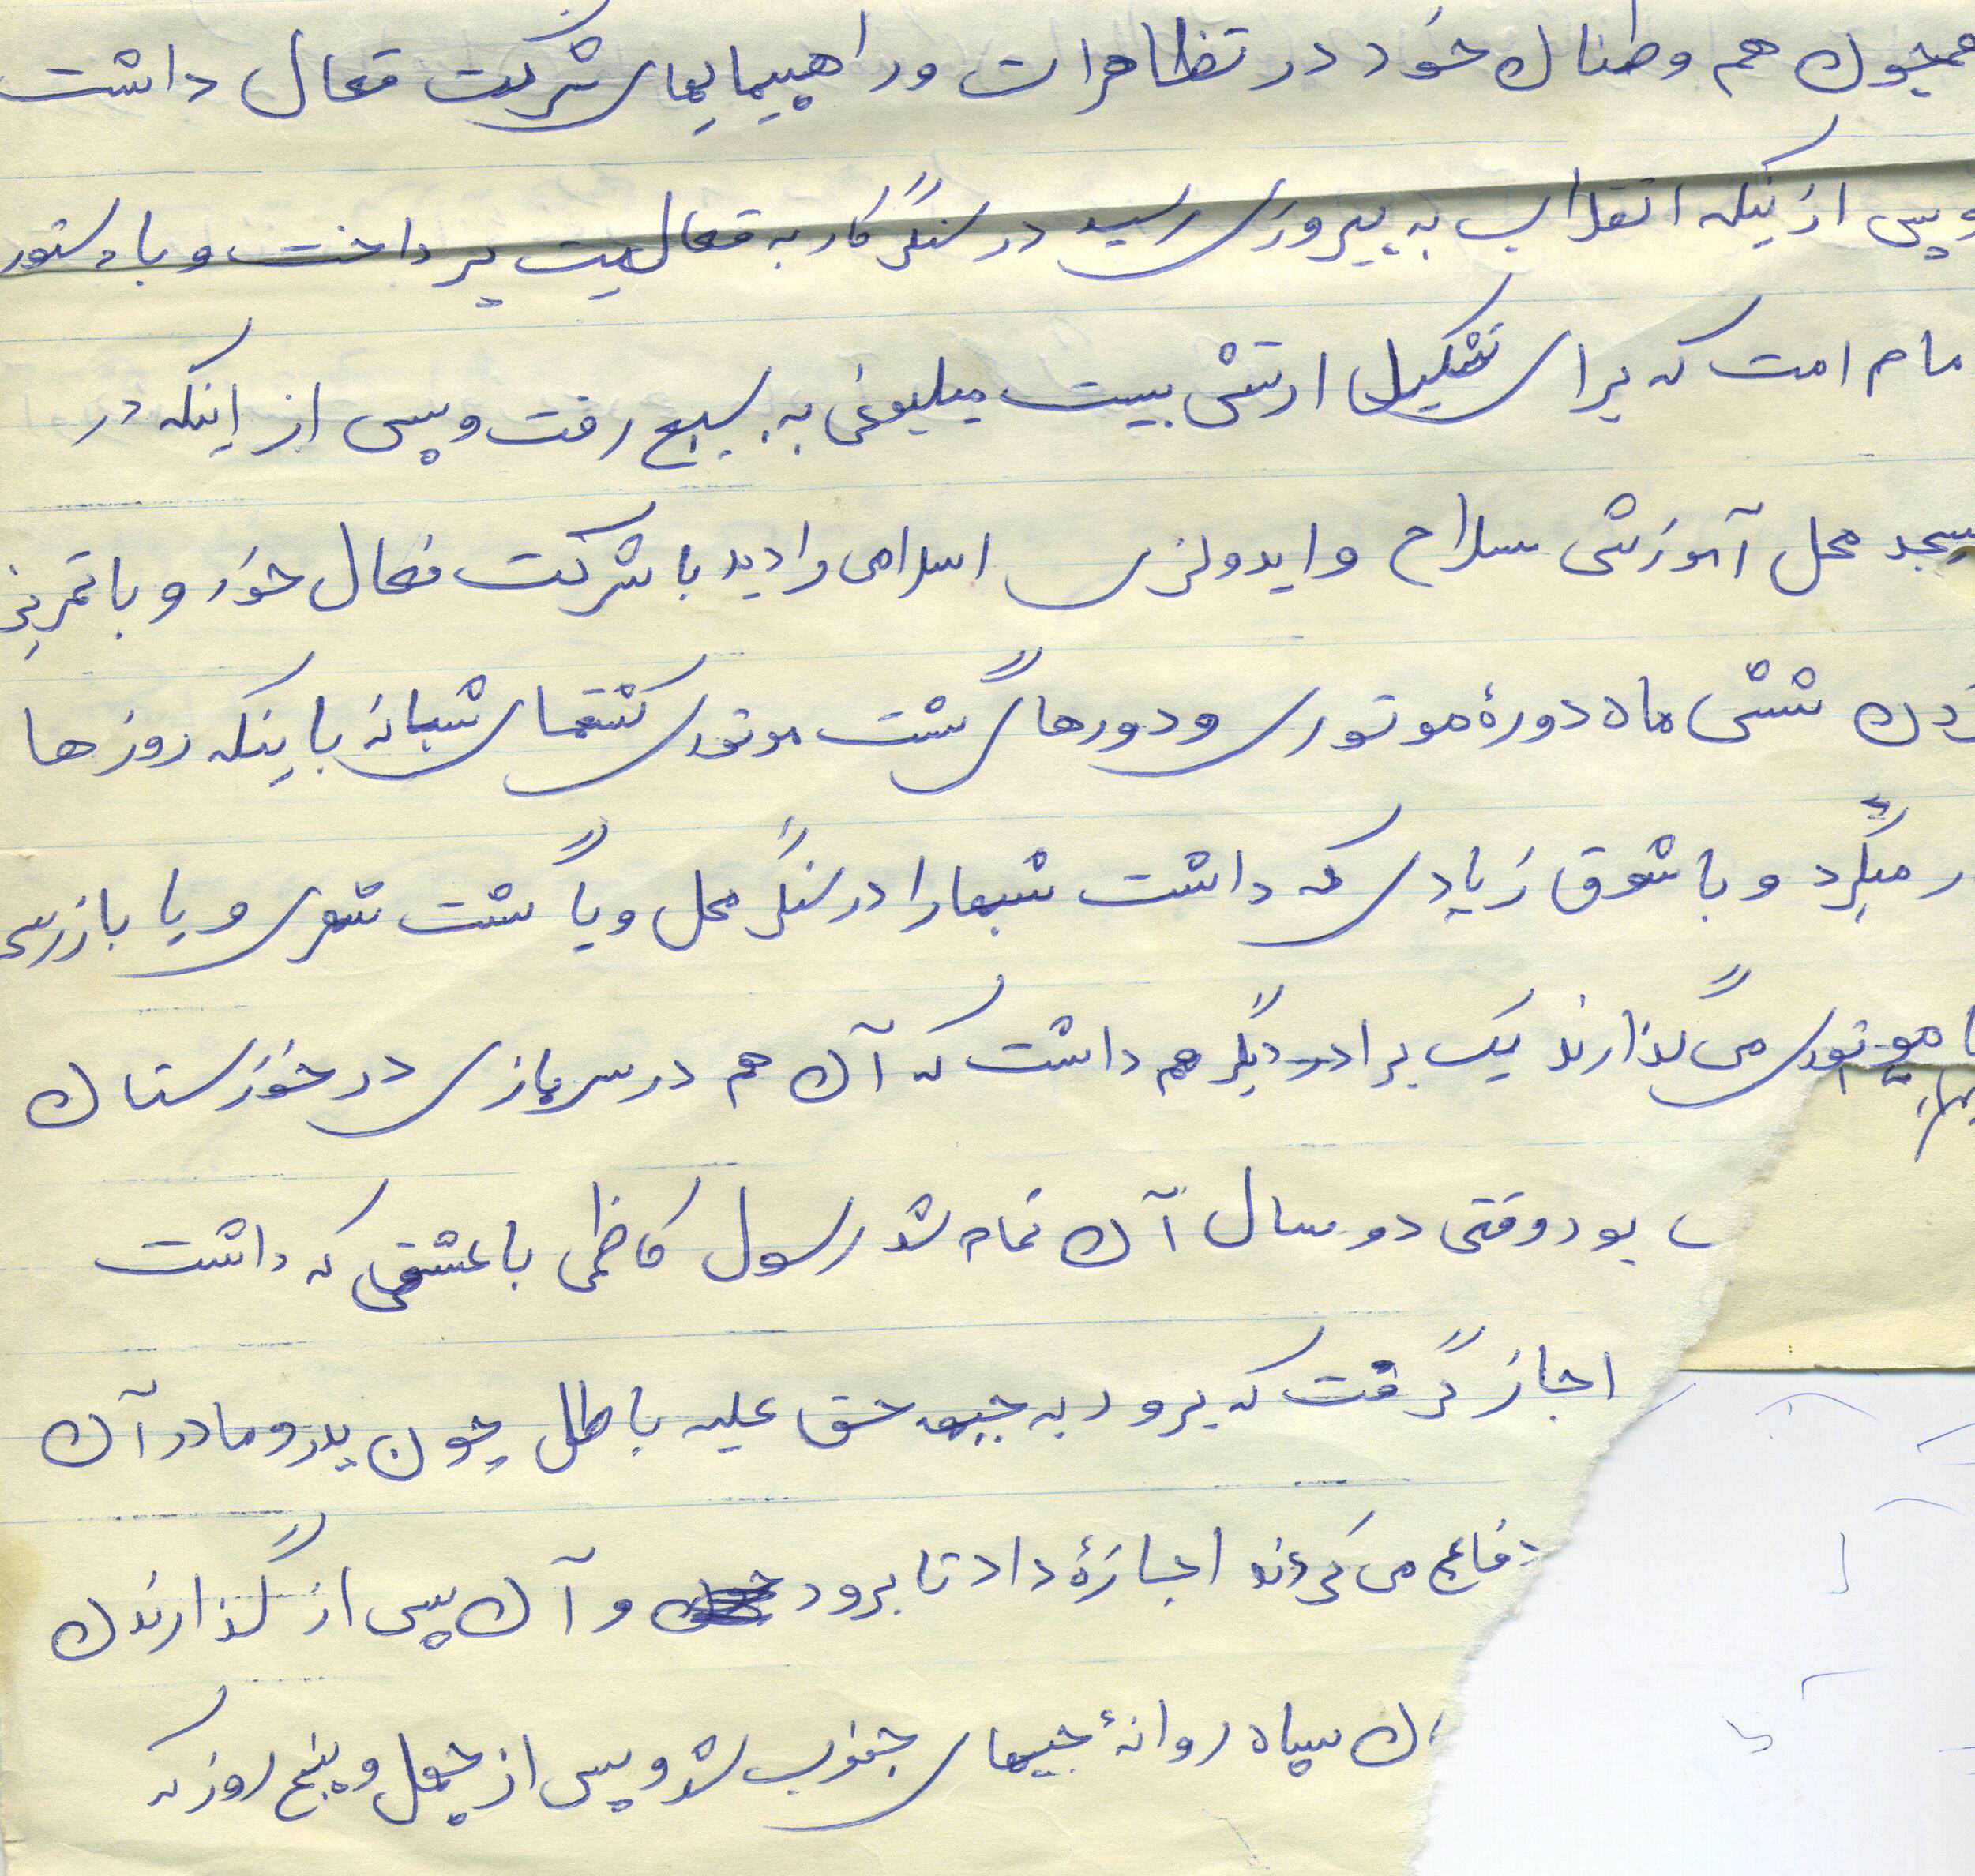 همچون هم وطنان خود در تظاهرات وراهپیمایهای شرکت فعال داشت
و پس ازینکه انقلاب به پیروزی رسید در سنگر کار به فعالیت پرداخت و با دستور
مام امت که برای تشکیل ارتش بیست میلیونی به بسیج رفت و پس از اینکه در
سجد محل آموزش سلاح و ایدولزی اسلامی را دید با شرکت فعال خود و با تمرین
شش ماه دورهٔ موتوری و دورهای گشت موتوری کشتهای شبانه با ینکه روزها
ر میکرد و با شوق زیادی که داشت شبها را در سنگر محل و یا گشت شهری و یا بازرسی
موتوری می گذارند یک برادر دیگر هم داشت که آن هم در سربازی در خوزستان
بود وقتی دو سال آن تمام شد رسول کاظمی با عشقی که داشت
اجاز گرفت که برود به جبهه حق علیه باطل چون پدر و مادر آن
دفاع می کردند اجازهٔ داد تا برود و آن پس از گذارندن
سپاه روانهٔ جبهای جنوب شد و پس از چهل و پنج روز که